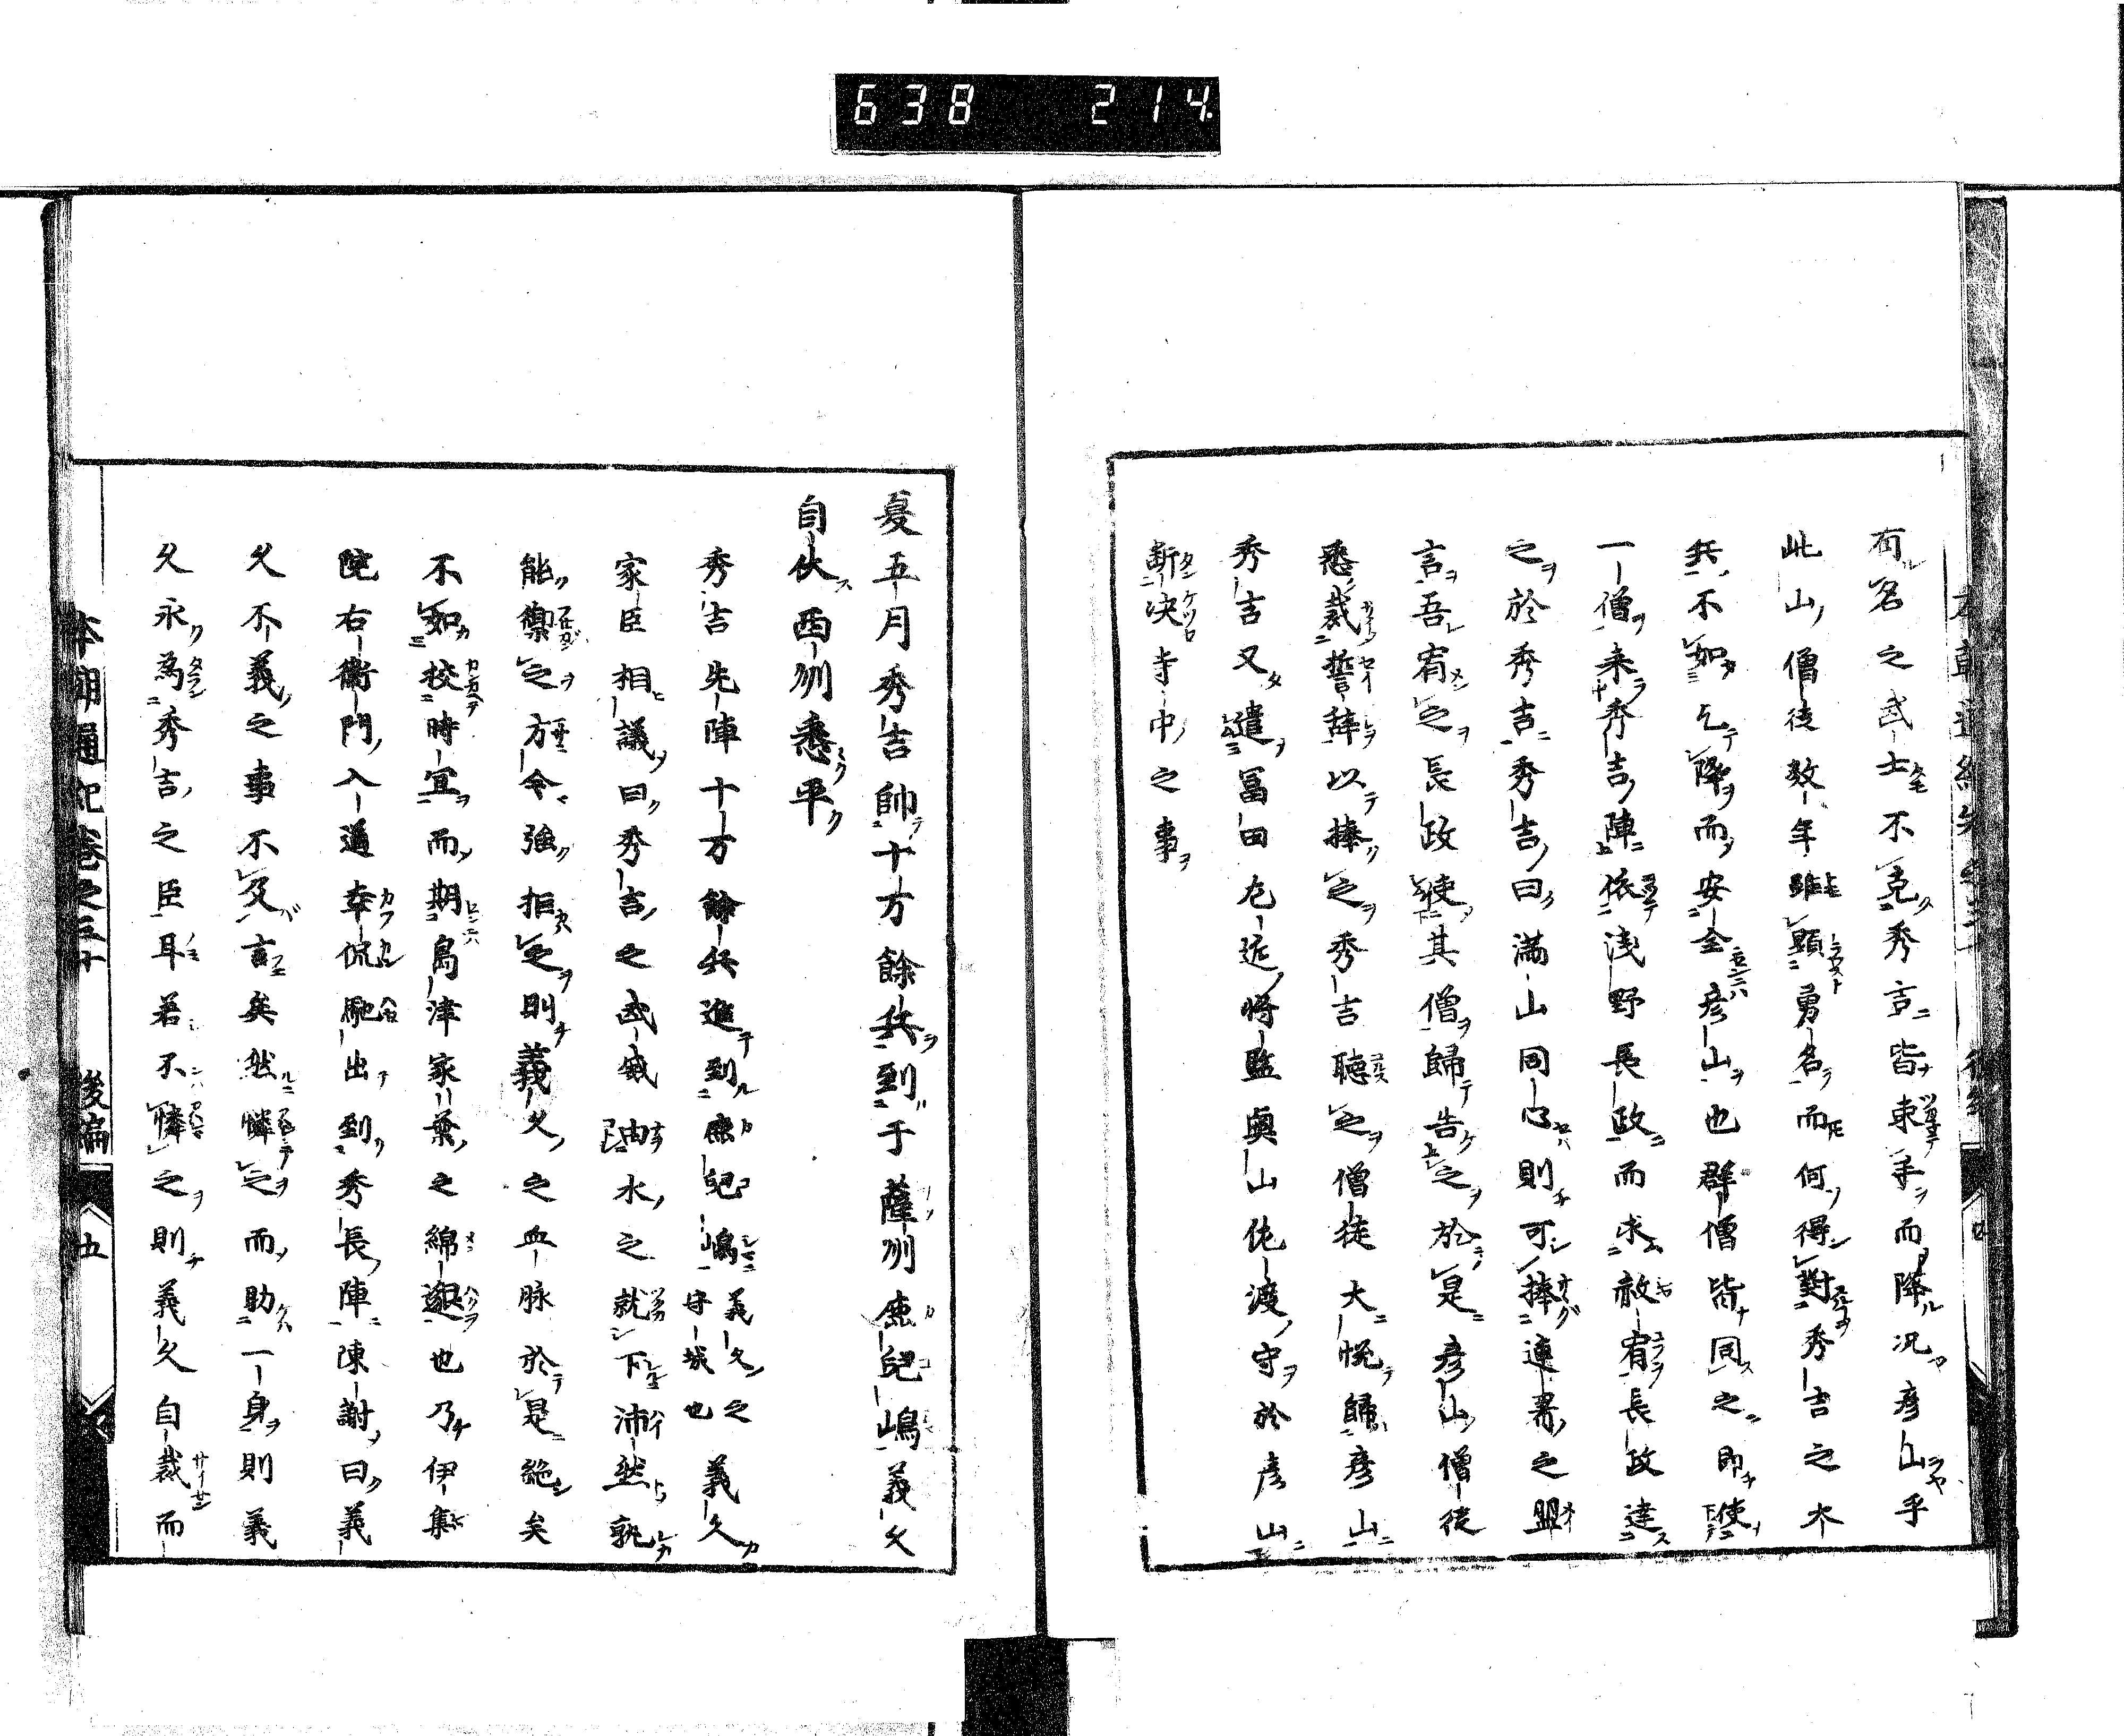 638 214
有名之武士不克秀吉皆束手而降況彦山乎
此山僧徒数年雖顕勇名而何得対秀吉之大
兵不如乞降而安全彦山也群僧皆同之即使
一僧来秀吉陣依浅野長政而求赦宥長政達
之於秀吉秀吉曰満山同心則可捧連署之盟
言吾宥之長政使其僧帰告之於是彦山僧徒
悉裁誓辞以捧之秀吉聴之僧徒大悦帰彦山
秀吉又遣冨田左近将監與山佐渡守於彦山
断決寺中之事
夏五月秀吉帥十万餘兵到于薩州鹿児嶋義久
自伏西州悉平
秀吉先陣十万餘兵進到鹿児嶋義久之守城也義久
家臣相議曰秀吉之武威由水之就下沛然孰
能禦之方今強拒之則義久之血脉於是絶矣
不如校時宜而期島津家葉之綿邈也乃伊集
院右衛門入道幸侃馳出到秀長陣陳謝曰義
久不義之事不及言矣然憐之而助一身則義
久永為秀吉之臣耳若不憐之則義久自裁而
本朝通紀巻之三十 後編 五